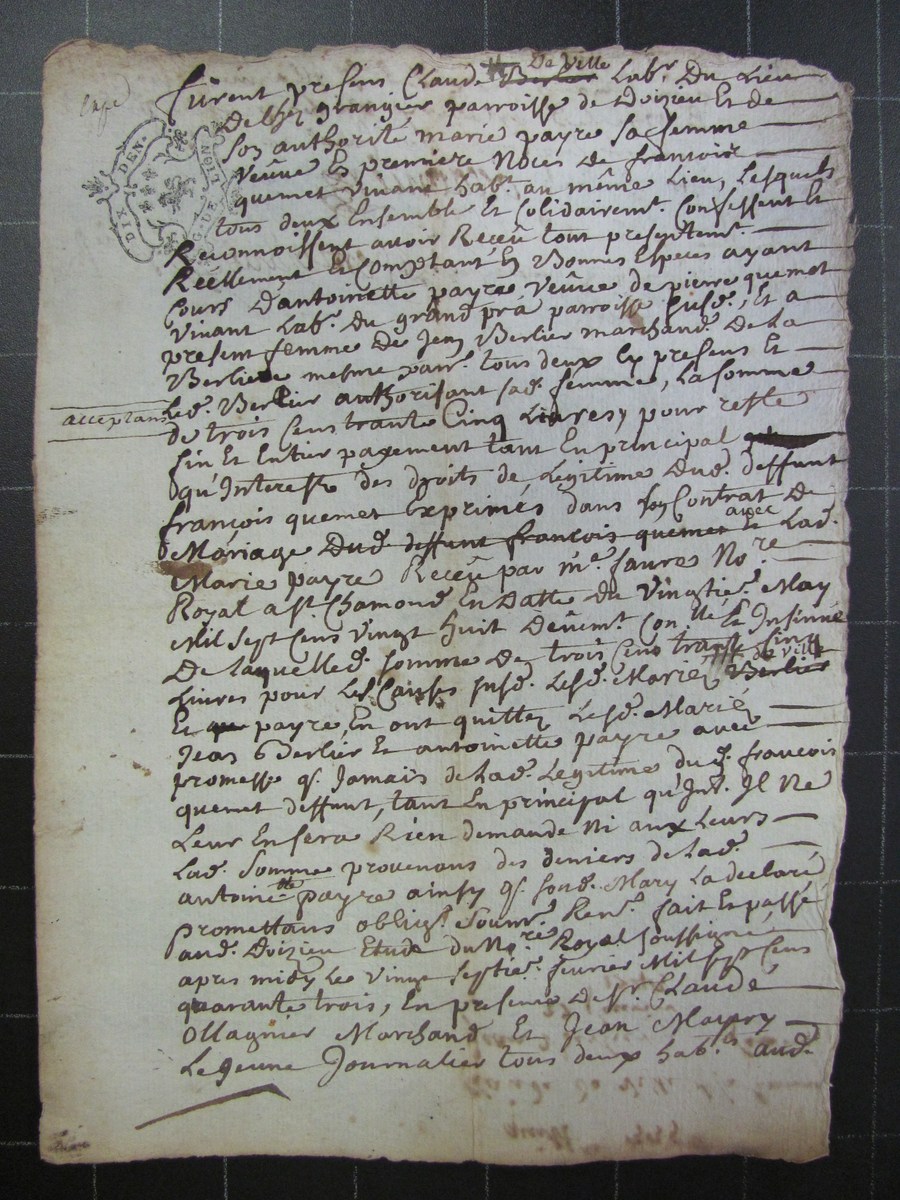 De Ville
furent presens Claude Berlier Labr. Du Lieu
De Lhs. grangier parroisse de Doizieu Et de
son authorité marie payre sa femme
Veuve En premiere Noces de francois
quemet Vivant hab. au même Lieu, Lesquels
tous deux Ensemble Et Solidairemt. Confessent Et
Reconnoissent avoir Receu tout presentemt.
Réellement Et Comptant En Bonnes Especes ayant
Cours D'antoinette payre veuve de pierre quemet
Vivant Labr. du grand pra parroisse susd., Et a
present femme de Jean Berlier marchand De La
Berliere mesme parr. tous deux Icy presens Et
acceptans
Led. Berlier authorisant sad. femme, La somme
de trois Cens trante Cinq Livres, pour reste
fin Et Entier payement tant En principal
qu'Interests des droits de Legitime Dud. deffunt
françois quemet Exprimés dans son Contrat De
Mariage Dud. deffunt francois quemet avec Lad.
Marie payre Receu par me. faure Nore.
Royal a st. Chamond En Datte du Vingtie. May
Mil sept Cens Vingt huit Deuemt. Con.llé Et Insinué
De Laquelle d. somme De trois Cens trante Cinq
de ville
Livres pour Les Causes susd. Lesd. Mariés Berlier
Et payre, En ont quitté Lesd. Mariés
Jean Berlier Et antoinette payre avec
promesse q. Jamais de Lad. Legitime du d. francois
quemet deffunt, tant En principal qu'Int. Il Ne
Leur Ensera Rien demandé Ni aux Leurs
Lad. Somme provenans des deniers de Lad.
antoinette payre ainsy q. sond. Mary La declaré
promettans oblige. Soumr. Renr. fait Et passé
aud. Doizieu Etude du Nore. Royal soussigné,
apres midy Le Vingt Septie. fevrier Mil sept Cens
quarante trois, En presence de sr. Claude
Ollagnier Marchand Et Jean
Le Jeune Journalier tous deux hab.s aud.
DIX DEN.
G. DE LION